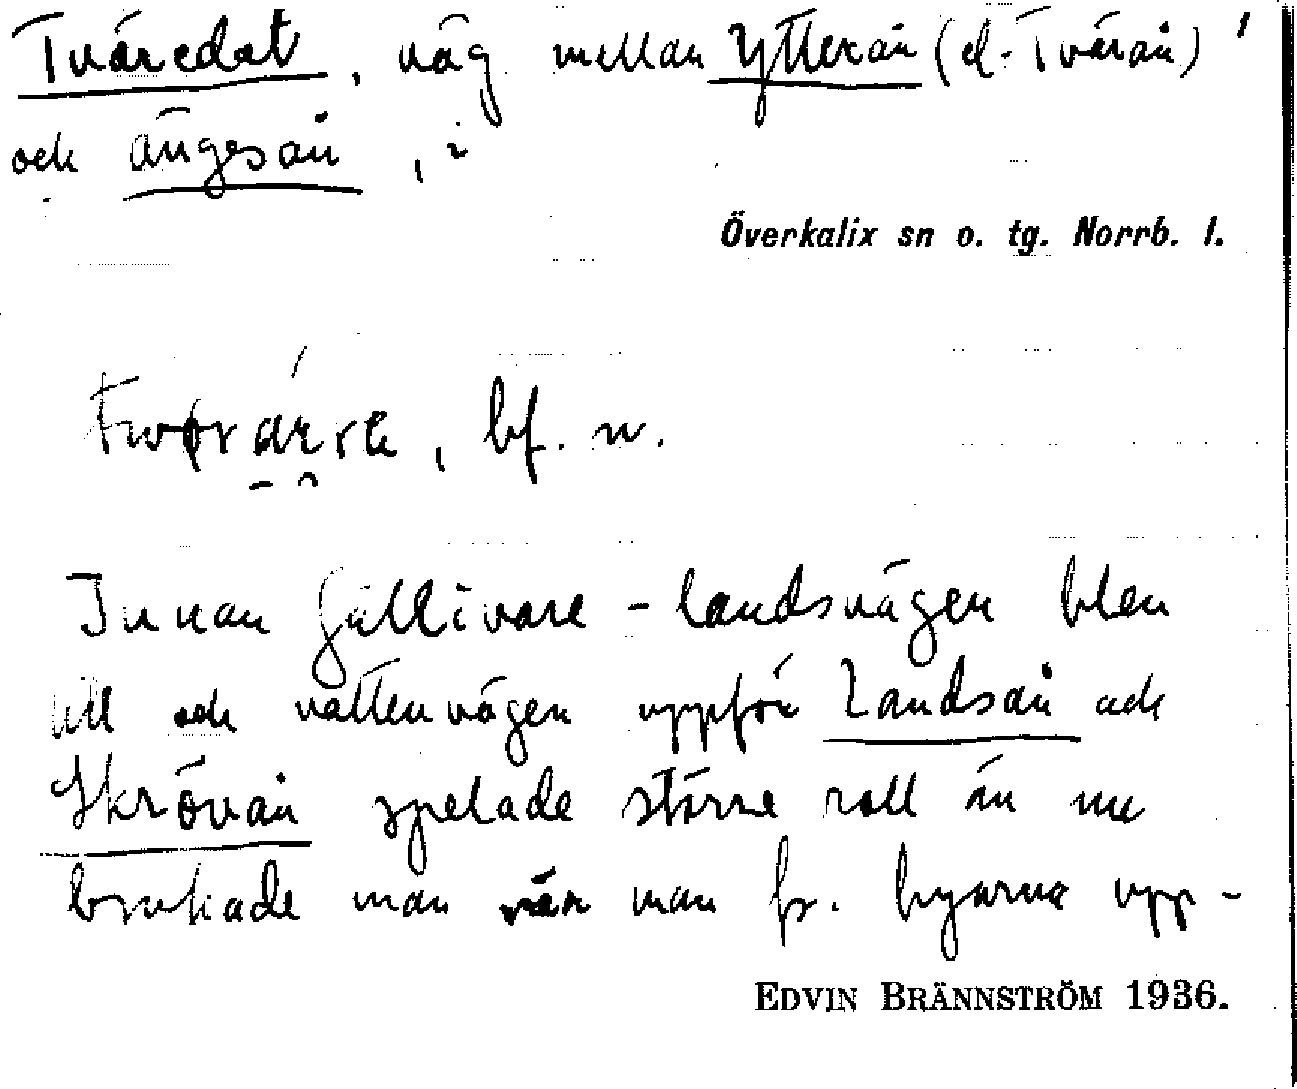 Tväredat, väg mellan Ytterån (el. Tvärån)
och Ängesån, i
Överkalix sn o. tg. Norrb. l.
, bf. n.
Innan Gällivare-landsvägen blev
till och vattenvägen uppför Landsån och
Skrövån spelade större roll än nu
brukade man när man fr. byarna upp-
EDVIN BRÄNNSTRÖM 1936.